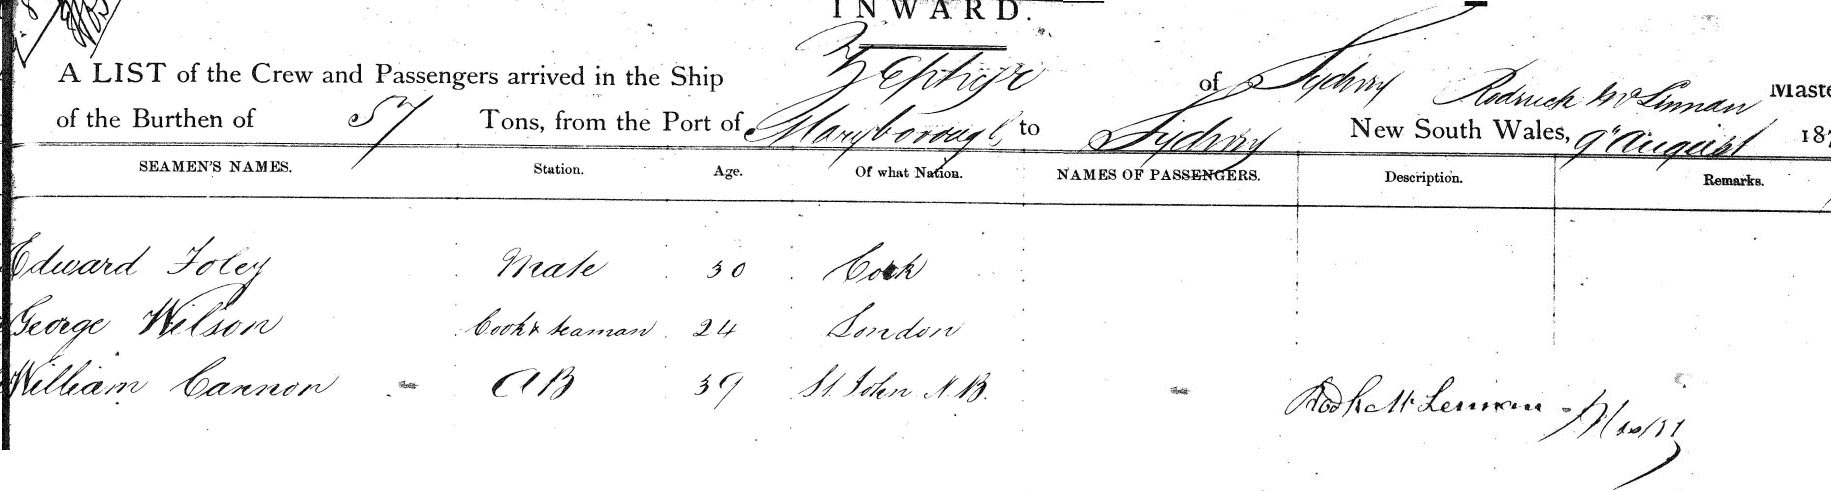 INWARD.
A LIST of the Crew and Passengers arrived in the Ship Zephyr of Sydney Roderick McLennan Maste
of the Burthen of 57 Tons, from the Port of Maryborough to Sydney New South Wales, 9th August 187
SEAMEN'S NAMES. Station. Age. Of what Nation. NAMES OF PASSENGERS. Description. Remarks.
Edward Foley Mate 30 Cork
George Wilson Cook & Seaman 24 London
William Cannon AB 39 St. John N.B.
Rodk McLennan